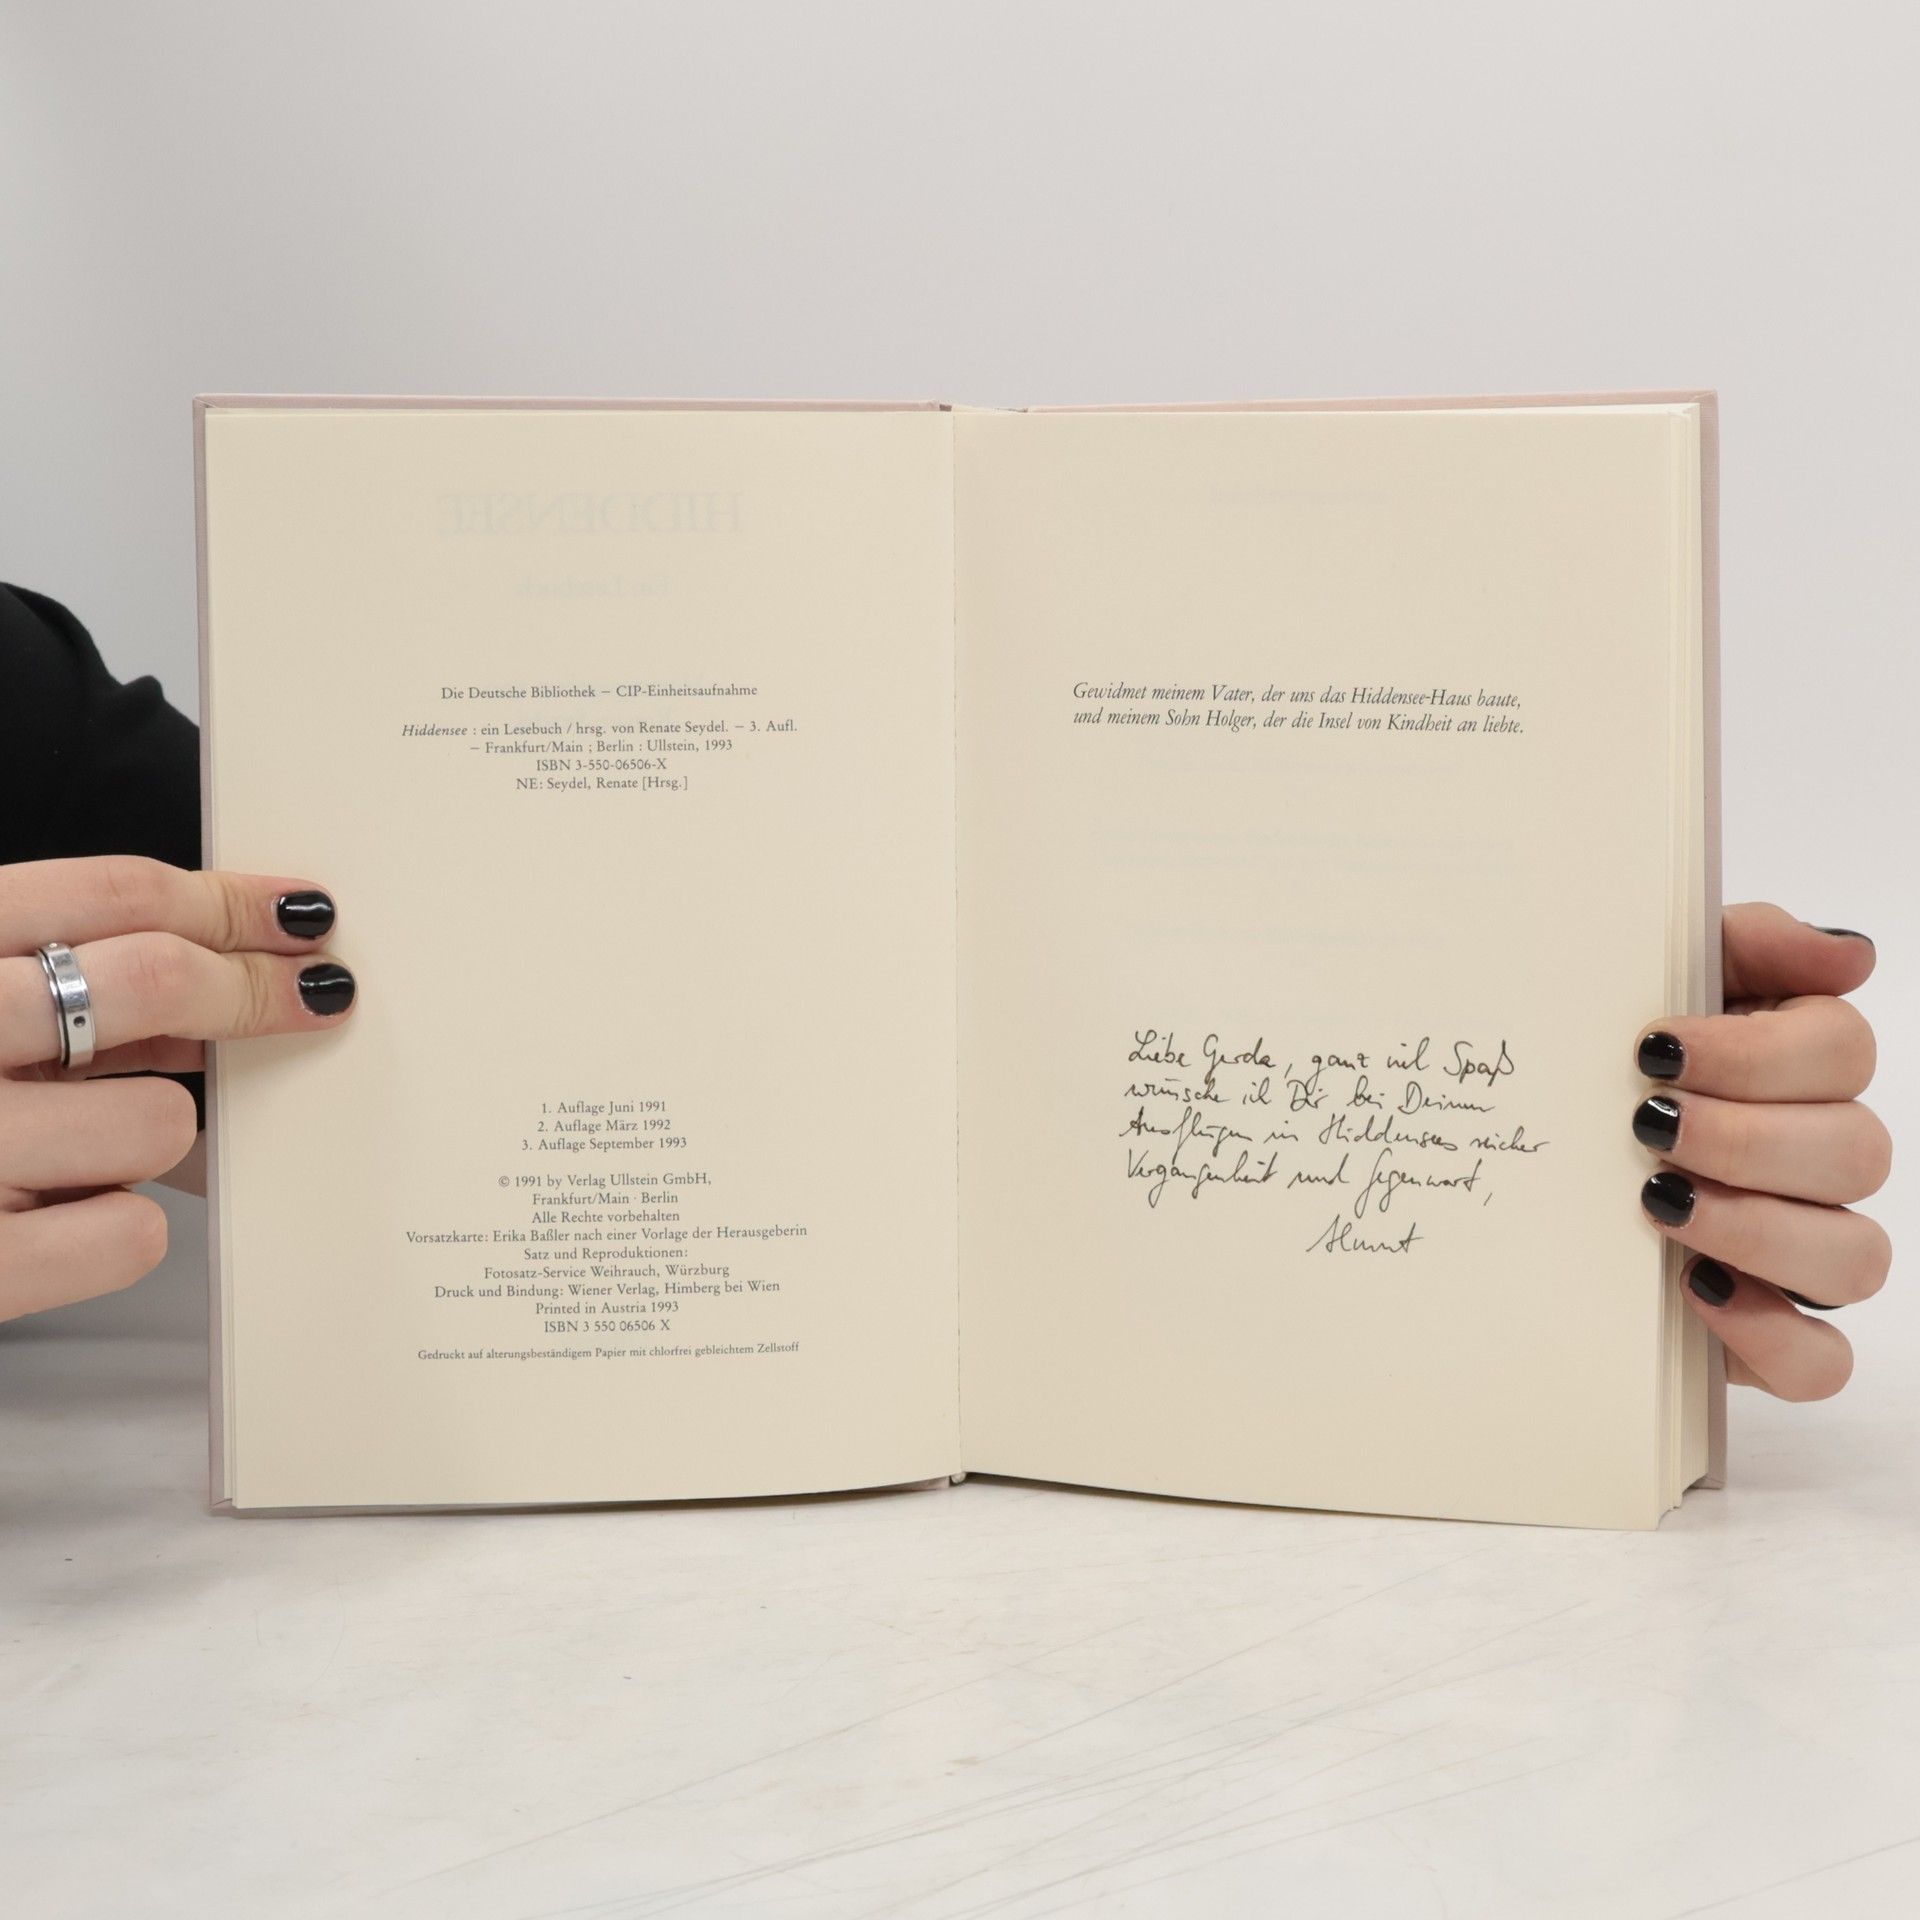 Die Deutsche Bibliothek – CIP-Einheitsaufnahme
Hiddensee : ein Lesebuch / hrsg. von Renate Seydel. – 3. Aufl.
– Frankfurt/Main ; Berlin : Ullstein, 1993
ISBN 3-550-06506-X
NE: Seydel, Renate [Hrsg.]
1. Auflage Juni 1991
2. Auflage März 1992
3. Auflage September 1993
© 1991 by Verlag Ullstein GmbH,
Frankfurt/Main · Berlin
Alle Rechte vorbehalten
Vorsatzkarte: Erika Baßler nach einer Vorlage der Herausgeberin
Satz und Reproduktionen:
Fotosatz-Service Weihrauch, Würzburg
Druck und Bindung: Wiener Verlag, Himberg bei Wien
Printed in Austria 1993
ISBN 3 550 06506 X
Gedruckt auf alterungsbeständigem Papier mit chlorfrei gebleichtem Zellstoff
Gewidmet meinem Vater, der uns das Hiddensee-Haus baute,
und meinem Sohn Holger, der die Insel von Kindheit an liebte.
Liebe Gerda, ganz viel Spaß
wünsche ich Dir bei Deinen
Ausflügen in Hiddensees reicher
Vergangenheit und Gegenwart,